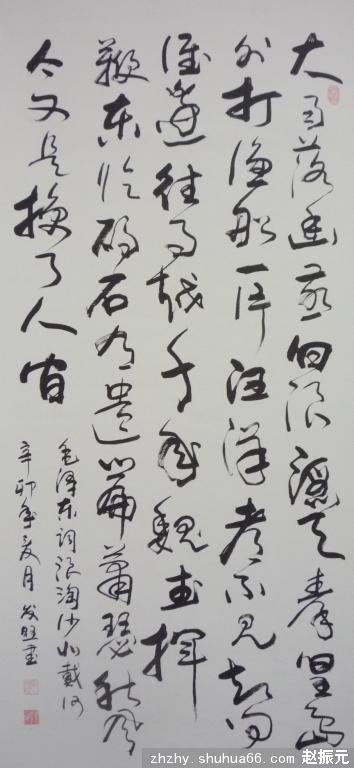 大雨落幽燕白浪滔天秦皇岛
外打渔船一片汪洋都不见知向
谁边往事越千年魏武挥
鞭东临碣石有遗篇萧瑟秋风
今又是换了人间
毛泽东词浪淘沙北戴河
辛卯年夏月发旺書
zhzhy.shuhua66.com 赵振元